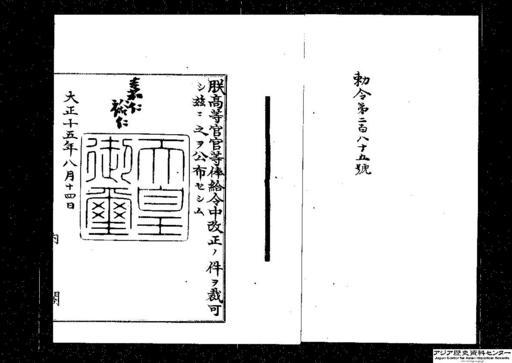 勅令第二百八十五號
朕高等官官等俸給令中改正ノ件ヲ裁可
シ茲ニ之ヲ公布セシム
嘉仁
裕仁
天皇
御璽
大正十五年八月十四日
内閣
アジア歴史資料センター
Japan Center for Asian Historical Records